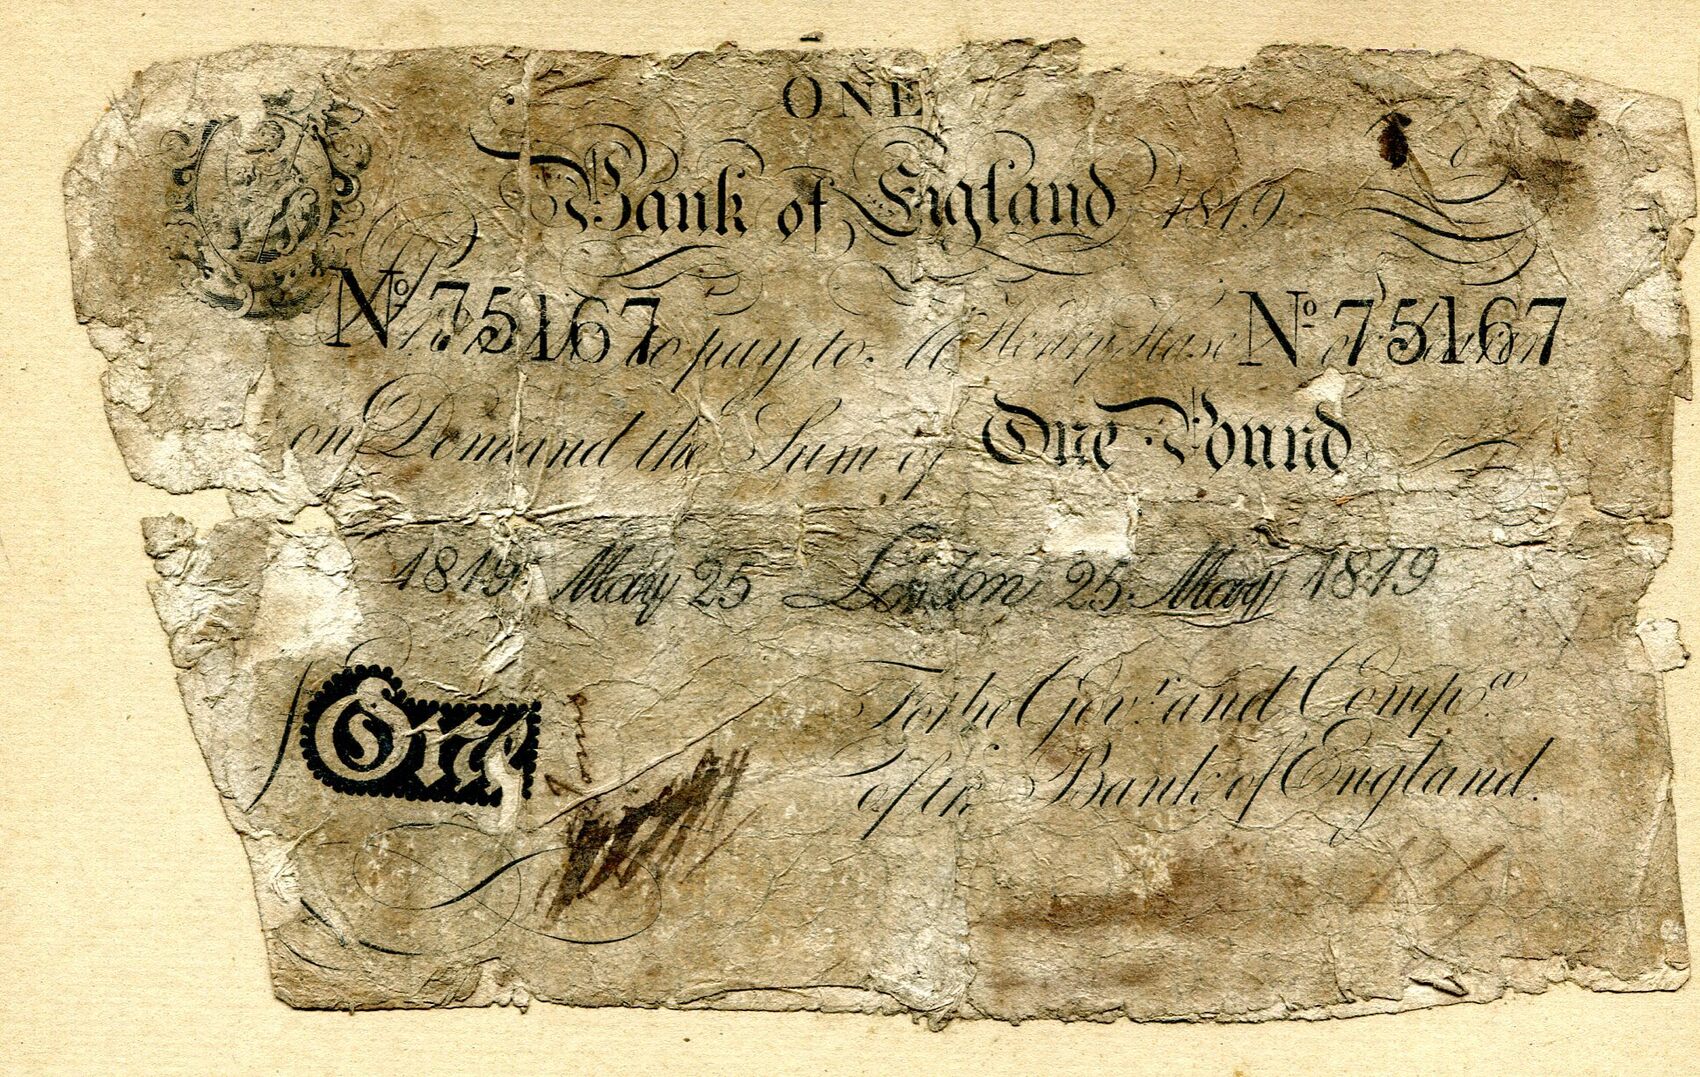 ONE
Bank of England 1819
No 75167 to pay to Mr Henry Hase No 75167
on Demand the Sum of One Pound
1819 May 25 London 25 May 1819
For the Govr. and Compa.
of the Bank of England.
One